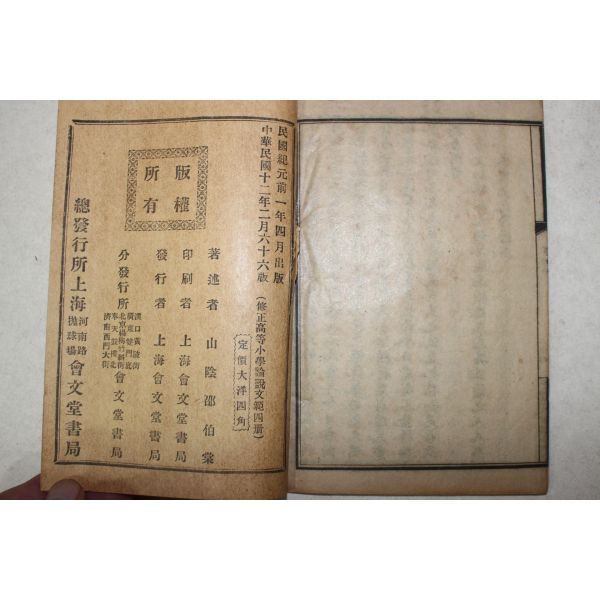 民國紀元前一年四月出版
中華民國十二年二月六十六版
(修正高等小學論說文範四册)
定價大洋四角
著述者 山陰邵伯棠
印刷者 上海會文堂書局
發行者 上海會文堂書局
分發行所
漢口黃陂街
廣東雙門底
北京楊梅竹斜街
奉天鼓樓北
濟南西門大街
會文堂書局
版權所有
總發行所上海
河南路
拋球場
會文堂書局